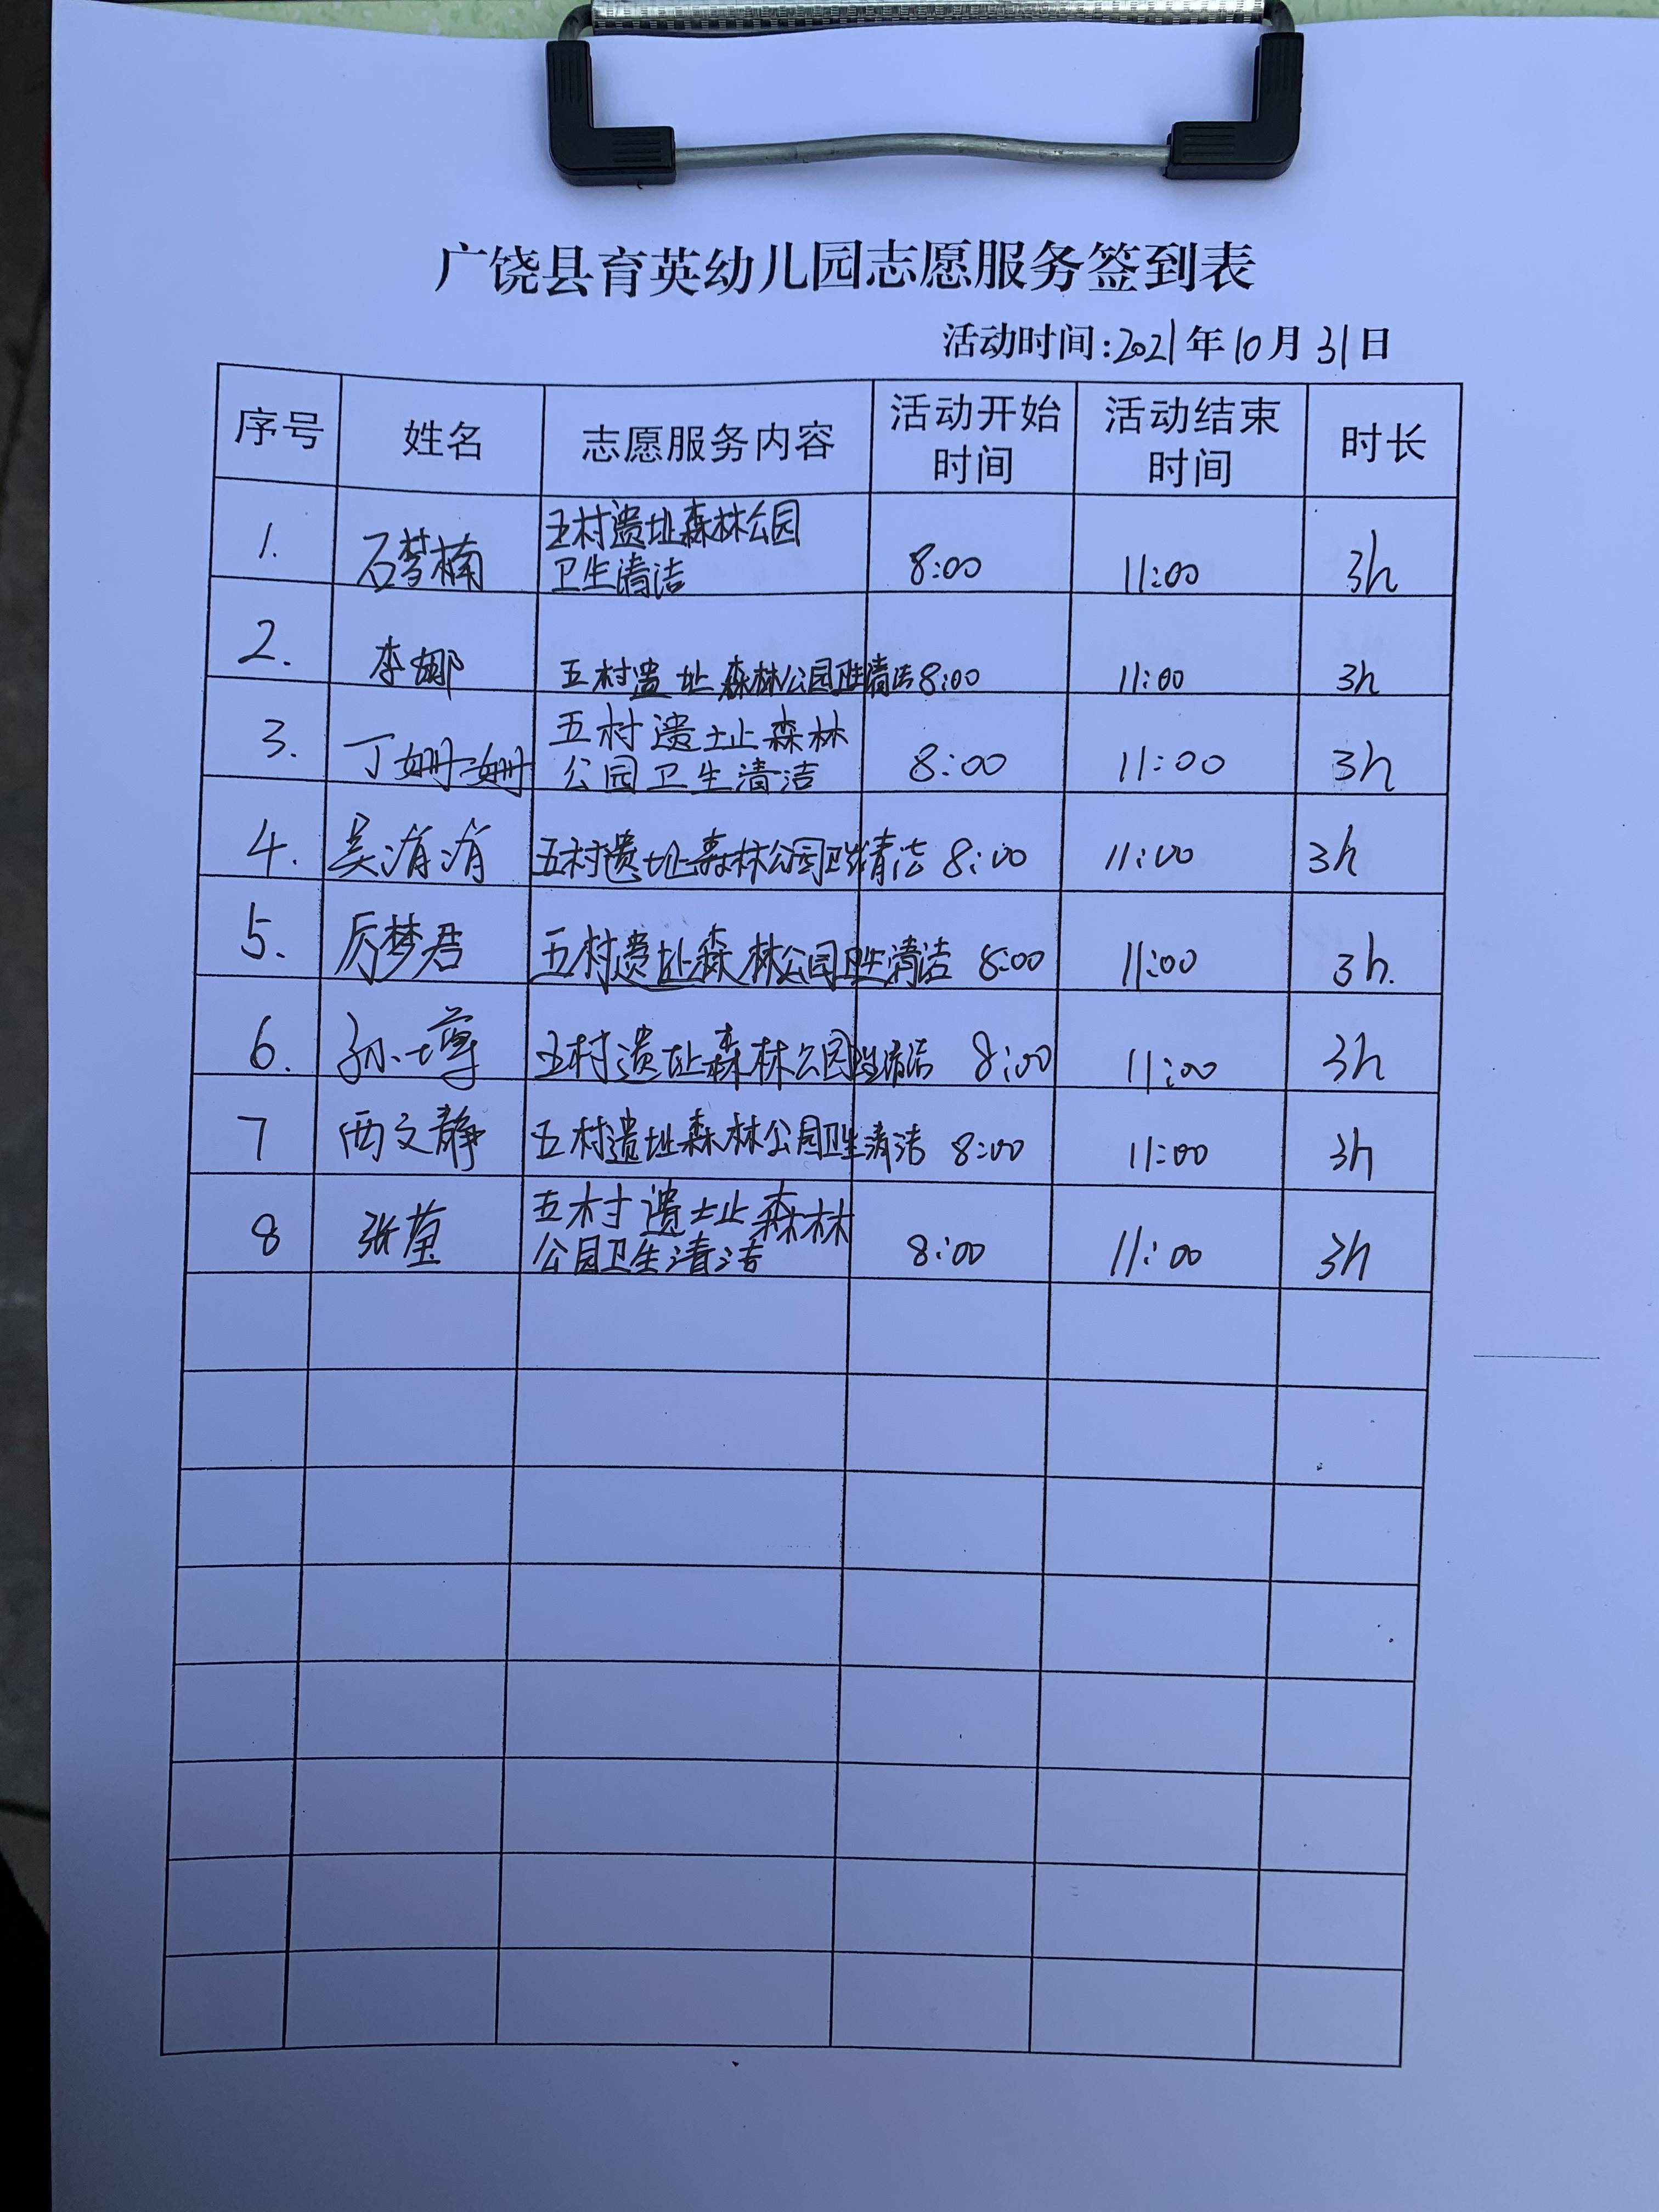 广饶县育英幼儿园志愿服务签到表
活动时间:2021年10月31日
序号 姓名 志愿服务内容 活动开始时间 活动结束时间 时长
1. 石梦楠 五村遗址森林公园卫生清洁 8:00 11:00 3h
2. 李娜 五村遗址森林公园卫生清洁 8:00 11:00 3h
3. 丁姗姗 五村遗址森林公园卫生清洁 8:00 11:00 3h
4. 吴清清 五村遗址森林公园卫生清洁 8:00 11:00 3h
5. 梦君 五村遗址森林公园卫生清洁 8:00 11:00 3h.
6. 孙 五村遗址森林公园卫生清洁 8:00 11:00 3h
7 西文静 五村遗址森林公园卫生清洁 8:00 11:00 3h
8 张莹 五村遗址森林公园卫生清洁 8:00 11:00 3h